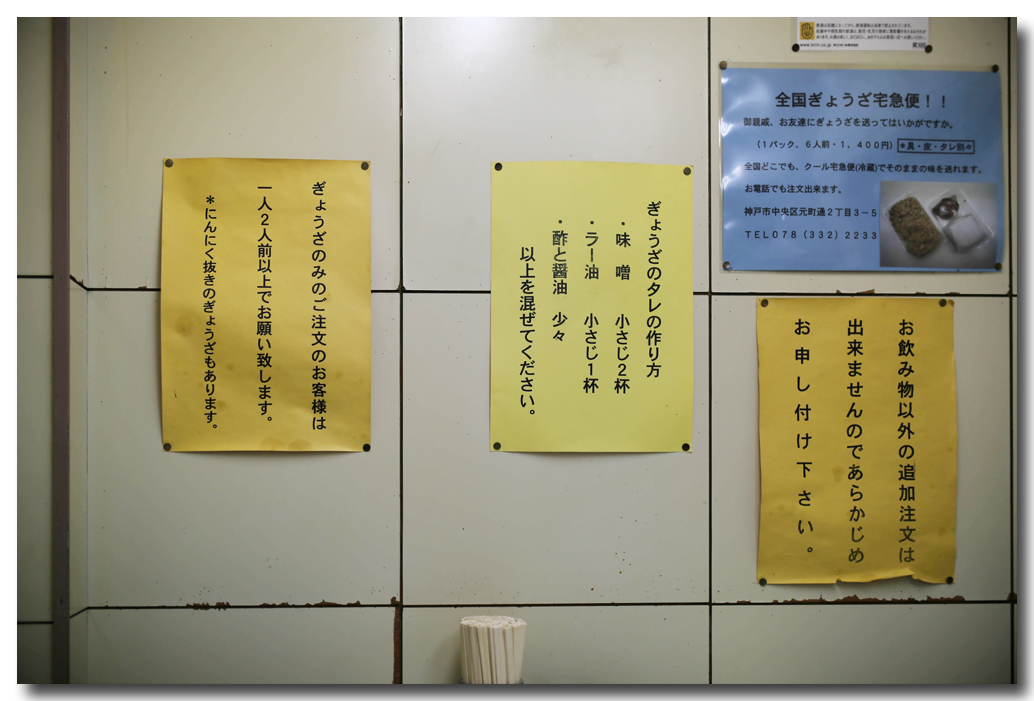 www.kirin.co.jp
全国ぎょうざ宅急便！！
御親戚、お友達にぎょうざを送ってはいかがですか。
（1パック、6人前・1，400円）＊具・皮・タレ別＊
全国どこでも、クール宅急便(冷蔵)でそのままの味を送れます。
お電話でも注文出来ます。
神戸市中央区元町通2丁目3－5
ＴＥＬ078（332）2233
お飲み物以外の追加注文は
出来ませんのであらかじめ
お申し付け下さい。
ぎょうざのタレの作り方
・味　噌　小さじ2杯
・ラー油　小さじ1杯
・酢と醤油　少々
以上を混ぜてください。
ぎょうざのみのご注文のお客様は
一人2人前以上でお願い致します。
＊にんにく抜きのぎょうざもあります。